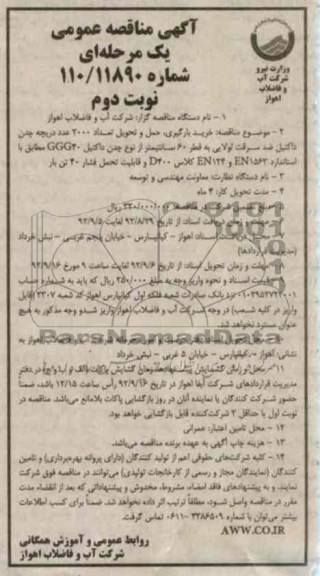 آگهی مناقصه عمومی
یک مرحله‌ای
شماره ۱۱۰/۱۱۸۹۰
نوبت دوم
وزارت نیرو
شرکت آب و
فاضلاب
اهواز
۱ - نام دستگاه مناقصه گزار: شرکت آب و فاضلاب اهواز
۲ - موضوع مناقصه: خرید، بارگیری، حمل و تحویل تعداد ۲۰۰۰ عدد دریچه چدن
داکتیل ضد سرقت لولایی به قطر ۶۰ سانتیمتر از نوع چدن داکتیل GGG40 مطابق با
استاندارد EN1563 و EN124 کلاس D400 و قابلیت تحمل فشار ۴۰ تن بار
۳ - نام دستگاه نظارت: معاونت مهندسی و توسعه
۴ - مدت تحویل کار: ۴ ماه
شرکت در مناقصه: ریال
دریافت اسناد: از تاریخ ۹۲/۸/۲۹ لغایت ۹۲/۹/۵
اسناد: اهواز - کیانپارس - خیابان پنجم غربی - نبش خرداد
(مدیریت قراردادها)
مهلت و زمان تحویل اسناد: از تاریخ ۹۲/۹/۶ لغایت ساعت ۹ مورخ ۹۲/۹/۱۶
قیمت اسناد و نحوه واریز وجه به مبلغ ۲۵۰/۰۰۰ ریال که باید به شماره حساب
نزد بانک صادرات شعبه فلکه اول کیانپارس اهواز کد شعبه ۲۳۰۷ (قابل
واریز در کلیه شعب) در وجه شرکت آب و فاضلاب اهواز واریز شود وجه مذکور به هیچ
عنوان مسترد نخواهد شد.
شرکت آب و فاضلاب اهواز به
نشانی: اهواز - کیانپارس - خیابان ۵ غربی - نبش خرداد
۱۱ - محل و زمان گشایش پاکات در دفتر
مدیریت قراردادهای شرکت آبفا اهواز در تاریخ ۹۲/۹/۱۶ رأس ساعت ۱۲/۱۵ باشد، ضمناً
حضور شرکت کنندگان یا نماینده آنان در روز بازگشایی پاکات بلامانع می‌باشد. مناقصه در
نوبت اول با حداقل ۲ شرکت‌کننده قابل بازگشایی خواهد بود.
۱۲ - محل تامین اعتبار: عمرانی
۱۳ - هزینه چاپ آگهی به عهده برنده مناقصه می‌باشد.
۱۴ - کلیه شرکت‌های حقوقی اعم از تولید کنندگان (دارای پروانه بهره‌برداری) و تامین
کنندگان (نمایندگان مجاز و رسمی از کارخانجات تولیدی) می‌توانند در مناقصه فوق شرکت
نمایند. و به پیشنهادهای فاقد امضاء، مشروط، مخدوش و پیشنهاداتی که بعد از انقضاء مدت
مقرر در مناقصه واصل شود، مطلقاً ترتیب اثر داده نخواهد شد. ضمناً برای کسب اطلاعات
بیشتر می‌توان با شماره ۳۳۸۶۵۰۹-۰۶۱۱ تماس گرفت.
AWW.CO.IR
روابط عمومی و آموزش همگانی
شرکت آب و فاضلاب اهواز